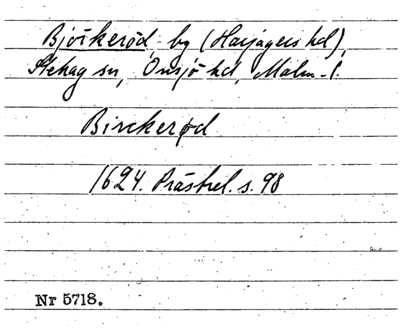 Björkeröd, by (Harjagers hd),
Stehag sn, Onsjö hd, Malm. l.
Birckerød
1624. Prästrel. s. 98
Nr 5718.